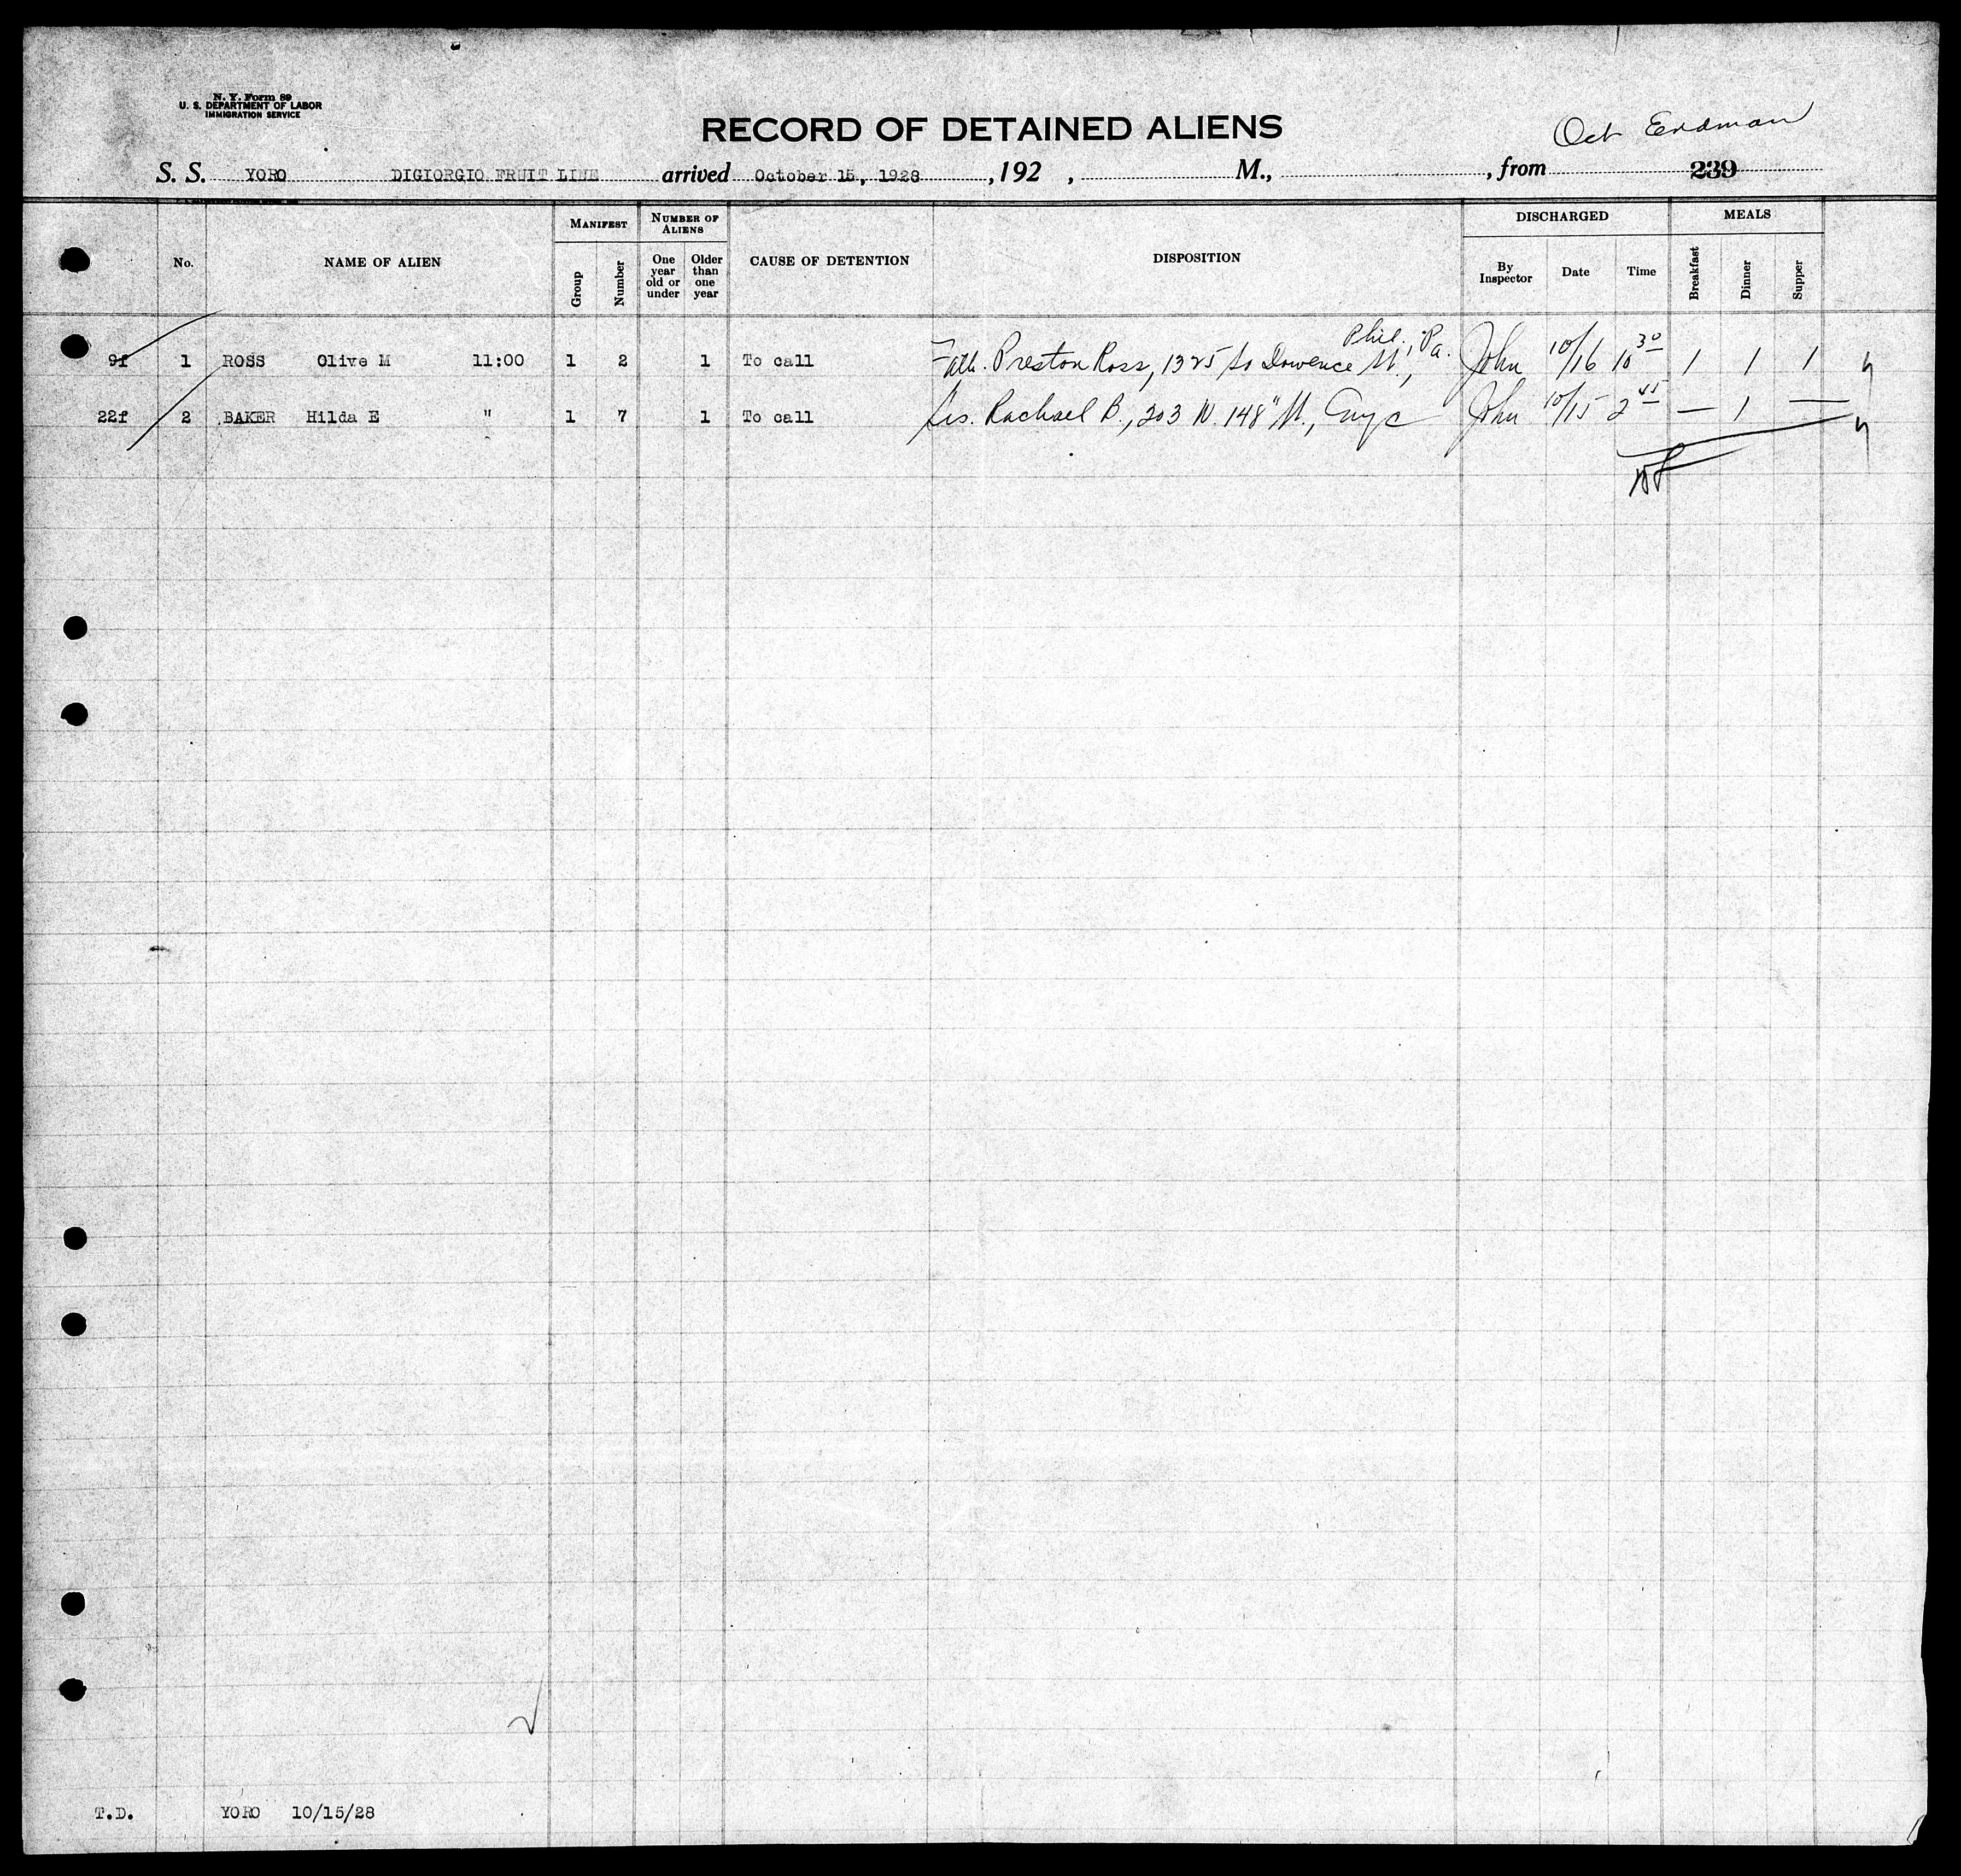 N. Y. Form 89
U. S. DEPARTMENT OF LABOR
IMMIGRATION SERVICE
RECORD OF DETAINED ALIENS
Oct Erdman
S. S. YORO DIGIORGIO FRUIT LINE arrived October 15, 1928 , 192 , M., , from 239
No. NAME OF ALIEN MANIFEST Group Number NUMBER OF ALIENS One year old or under Older than one year CAUSE OF DETENTION DISPOSITION DISCHARGED By Inspector Date Time MEALS Breakfast Dinner Supper
Phil., Pa.
9f 1 ROSS Olive M 11:00 1 2 1 To call Fath. Preston Ross, 1325 So St., John 10/16 10 30 1 1 1
22f 2 BAKER Hilda E " 1 7 1 To call Sis. Rachael B., 203 W. 148" St., nyc John 10/15 2 45 — 1 —
T.D. YORO 10/15/28